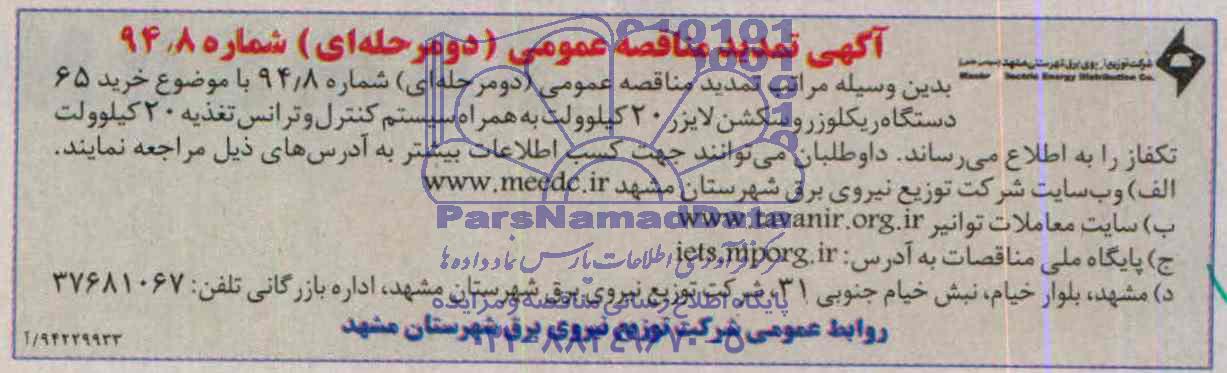 آگهی تمدید مناقصه عمومی (دومرحله‌ای) شماره ۹۴٫۸
شرکت توزیع نیروی برق شهرستان مشهد
Electric Energy Distribution Co.
بدین وسیله مراتب تمدید مناقصه عمومی (دومرحله‌ای) شماره ۹۴/۸ با موضوع خرید ۶۵
دستگاه ریکلوزر و سکشن لایزر ۲۰ کیلوولت به همراه سیستم کنترل و ترانس تغذیه ۲۰ کیلوولت
تکفاز را به اطلاع می‌رساند. داوطلبان می‌توانند جهت کسب اطلاعات بیشتر به آدرس‌های ذیل مراجعه نمایند.
الف) وب‌سایت شرکت توزیع نیروی برق شهرستان مشهد www.meedc.ir
ب) سایت معاملات توانیر www.tavanir.org.ir
ParsNamadData
ج) پایگاه ملی مناقصات به آدرس: iets.mporg.ir
مرکز فرآوری اطلاعات پارس نماد داده ها
د) مشهد، بلوار خیام، نبش خیام جنوبی ۳۱، شرکت توزیع نیروی برق شهرستان مشهد، اداره بازرگانی تلفن: ۳۷۶۸۱۰۶۷
پایگاه اطلاع رسانی مناقصه و مزایده
روابط عمومی شرکت توزیع نیروی برق شهرستان مشهد
۰۲۱-۸۸۳۴۹۶۷۰-۵
۹۴۲۲۹۹۲۳/آ